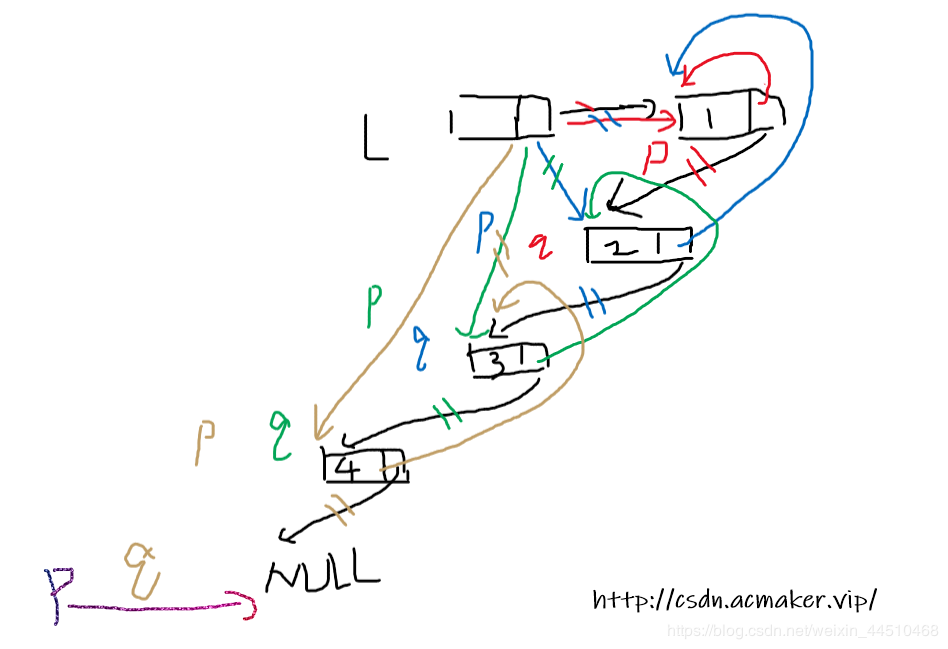 L
1
P
2
P
q
P
q
3
P
q
4
NULL
P
q
http://csdn.acmaker.vip/
https://blog.csdn.net/weixin_44510468